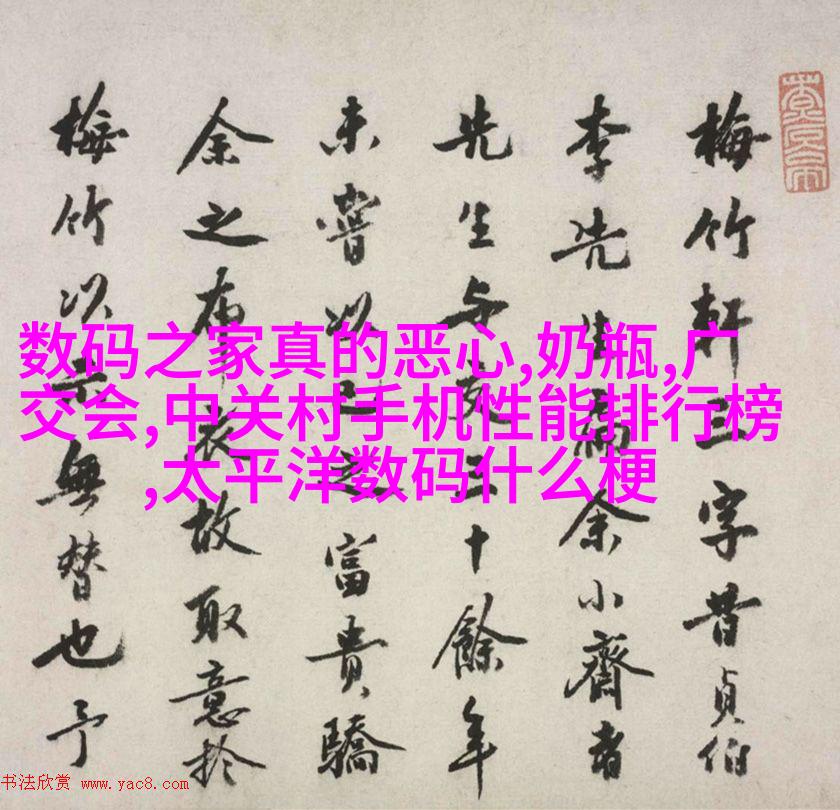 梅竹軒三字昔貞伯
李先生為余小齋書
先生与交三十餘年
未嘗以之富貴驕
余之布衣故取意於
梅竹以示無替也予
数码之家真的恶心,奶瓶,广
交会,中关村手机性能排行榜
,太平洋数码什么梗
书法欣赏 www.yac8.com